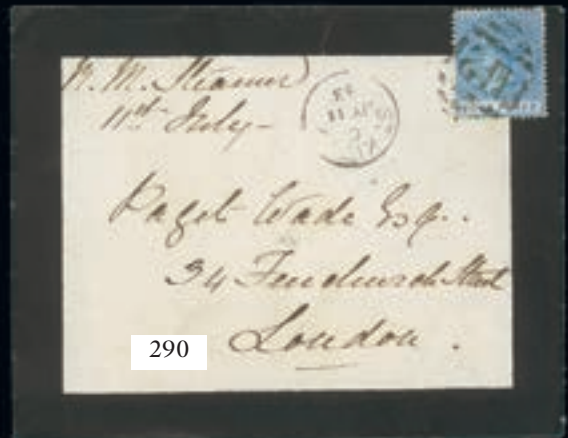 R.M. Steamer
11th July -
JY 11
83
Paget Wade Esq.
34 Fenchurch Street
London.
290